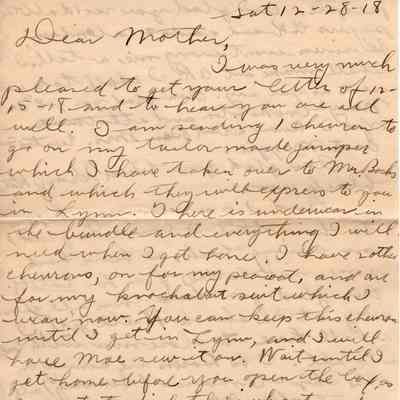 Sat 12-28-18
Dear Mother,
I was very much
pleased to get your letter of 12-
15-18 and to hear you are all
well. I am sending 1 chevron to
go on my tailor made jumper
which I have taken over to Mr. Bachs
and which they will express to you
in Lynn. There is underwear in
the bundle and everything I will
need when I get home. I have 2 other
chevrons, on for my peacoat, and one
for my knockabut suit which I
wear now. You can keep this chevron
until I get in Lynn, and I will
have Mae sew it on. Wait until I
get home before you open the box, as